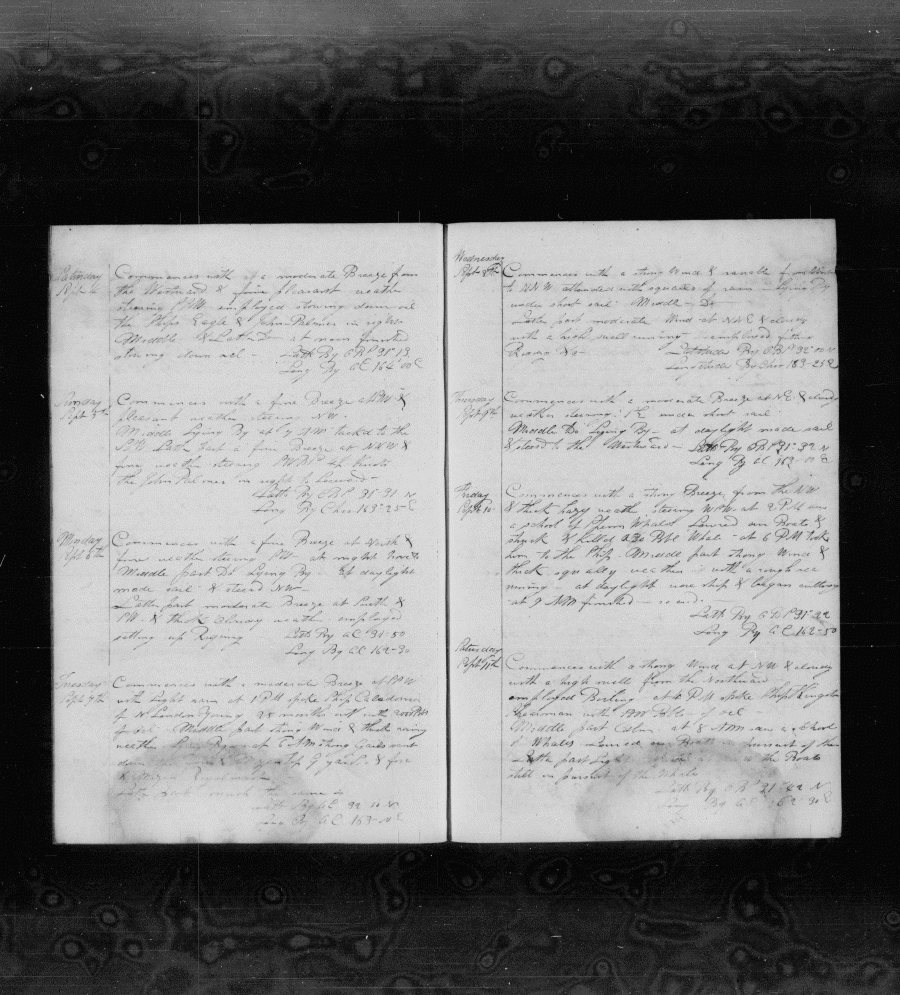 Saturday
Sept 4
Commences with a moderate Breeze from
the Westward & fine pleasant weather
steering SSW employed stowing down oil
the Ships Eagle & John Palmer in sight
Middle & Latter Do at noon finished
stowing down oil - Latt By OBS 31-13
Long By CC 164-00 E
Sunday
Sept 5th
Commences with a fine Breeze at &
pleasant weather steering NW -
Middle Lying By at 7 AM tacked to the
SW Latter part a fine Breeze at NNW &
fine weather steering
the John Palmer in sight to Leeward -
Latt By OBS 31-31 N
Long By Chro 163-25 E
Monday
Sept 6th
Commences with a fine Breeze at North &
fine weather steering at night hove to
Middle part Do Lying By - at daylight
made sail & steerd NW -
Latter part moderate Breeze at South &
& thick cloudy weather employed
setting up Riging Latt By AC 31-50
Long By CC 162-30
Tuesday
Sept 7th
Commences with a moderate Breeze at SSW
with Light at 1 PM spoke Ship Caledonia
of N London Young 25 months out with 2000 Bbls
of oil. Middle part strong Wind & thick rainy
weather at 6 AM strong Gales sent
down
Latter part much the same
Latt By AC 32 10 N
Long By CC 163-00 E
Wednesday
Sept 8th
Commences with a strong Wind & variable from West
to NNW attended with squalls of rain - Lying By
under short sail Middle - Do
Latter part moderate Wind at NNE & cloudy
with a high swell running - employed fitting
Riging &c - Lattitude By OBS 32 N
Longitude By Chro 163-25 E
Thursday
Sept 9th
Commences with a moderate Breeze at NE & cloudy
weather steering SE under short sail
Middle Do Lying By - at daylight made sail
& steerd to the Westward - Latt By OBS 31-32 N
Long By CC 163-00 E
Friday
Sept 10
Commences with a strong Breeze from the NW
& thick hazy weath steering WSW at 2 PM saw
a school of Sperm Whales Lowred our Boats &
struck & killed a 30 Bbl Whale - at 6 PM took
him to the Ship. Middle part strong Wind &
thick squaly weather with a rough sea
runing - at daylight wore ship & began cutting
at 9 AM finished - so ends
Latt By OBS 31-32
Long By CC 162-50
Saturday
Sept 11th
Commences with a strong Wind at NW & cloudy
with a high swell from the Northward
employed Boiling at 6 PM spoke Ship Kingston
with Bbls of oil
Middle part Calm. at 8 AM saw a School
of Whales Lowred our Boats in pursuit of them
Latter part Light the Boats
still in pursuit of the Whale
Latt By OBS 31-42 N
Long By CC 162-30 E